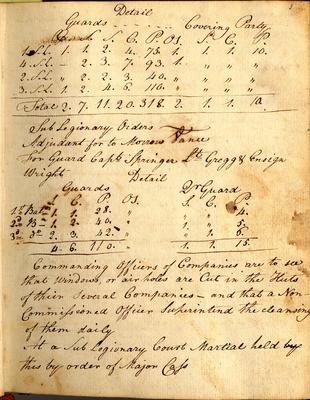 Detail
Guards Covering Party
S. C. P. Os. S. C. P.
1. S.L. 1. 1. 2. 4. 75. 1. 1. 1. 10.
4. S.L. - 2. 3. 7. 93. 1. " " "
2. S.L. " 2. 2. 3. 40. " " " "
3. S.L. 1. 2. 4. 6. 110. " " "
Total 2. 7. 11. 20. 318. 2. 1. 1. 10.
Sub Legionary Orders
Adjutant for to Morrow
For Guard Capt. Springer Lt. Gregg & Ensign
Wright. Detail
Guards Qr Guard
C. P. Os. S. C. P.
1st Bat. 1. 1. 28. " " 4.
2d Do 1. 2. 40. " 5.
3d Do 2. 3. 42. 1. 1. 6.
4. 6. 110. 1. 1. 15.
Commanding Officers of Companies are to see
that Windows, or air holes are Cut in the Huts
of thier Several Companies - and that a Non
Commissioned Officer Superintend the cleansing
of them daily
At a Sub Legionary Court Martial held by
this by order of Major Cass